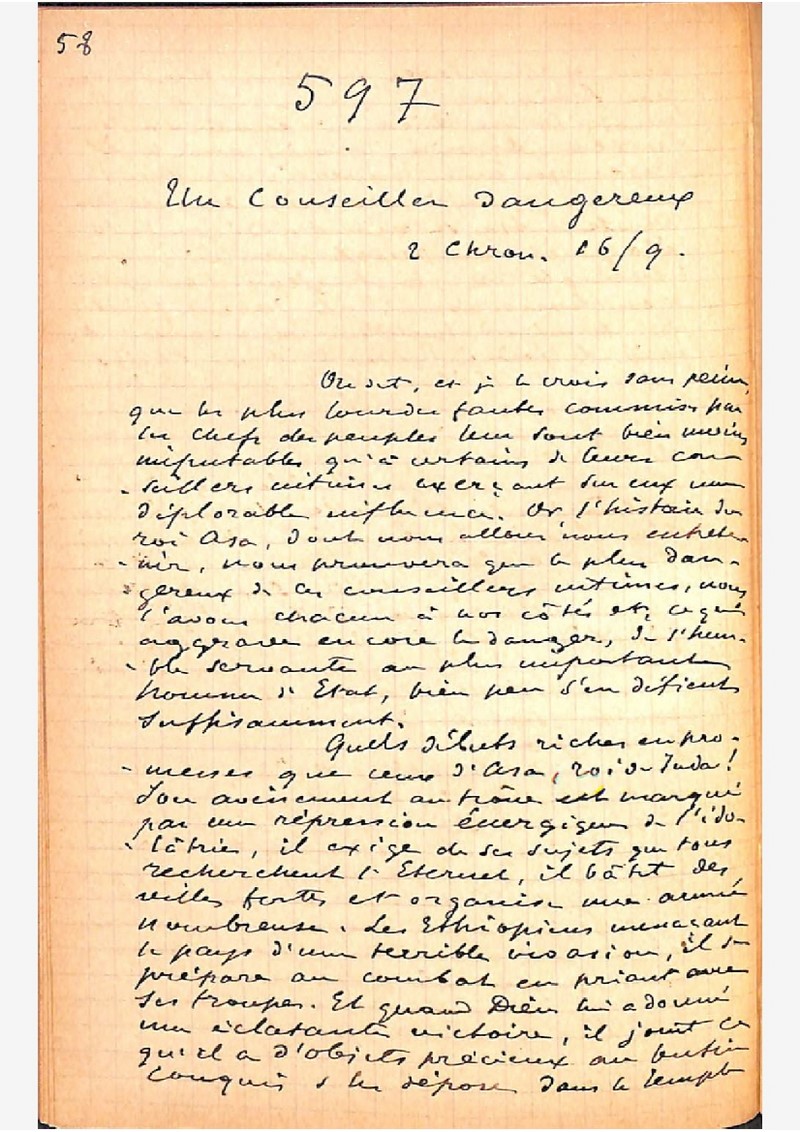 58
597
Un Conseiller dangereux
2 Chron. 16/9.
On dit, et je le crois sans peine,
que les plus lourdes fautes commises par
les chefs des peuples leur sont bien moins
imputables qu'à certains de leurs con-
-seillers intimes exerçant sur eux une
déplorable influence. Or l'histoire du
roi Asa, dont nous allons nous entrete-
-nir, nous prouvera que le plus dan-
-gereux de ces conseillers intimes, nous
l'avons chacun à nos côtés et, ce qui
aggrave encore le danger, de l'hum-
-ble servante au plus important
homme d'Etat, bien peu s'en défient
suffisamment.
Quels débuts riches en pro-
-messes que ceux d'Asa, roi de Juda!
Son avènement au trône est marqué
par une répression énergique de l'ido-
-lâtrie, il exige de ses sujets que tous
recherchent l'Eternel, il bâtit des
villes fortes et organise une armée
nombreuse. Les Ethiopiens menaçant
le pays d'une terrible invasion, il se
prépare au combat en priant avec
ses troupes. Et quand Dieu lui a donné
une éclatante victoire, il joint ce
qu'il a d'objets précieux au butin
conquis & les dépose dans le temple